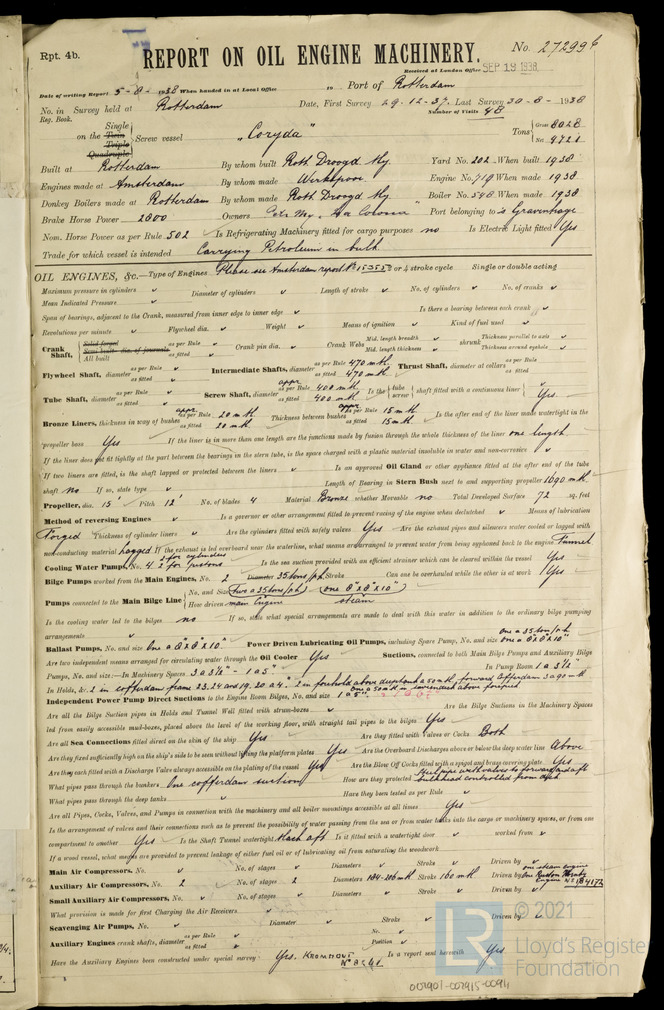 Rpt. 4b.
REPORT ON OIL ENGINE MACHINERY.
No. 272996
Received at London Office SEP 19 1938
Date of writing Report 5-8-1938 When handed in at Local Office 10 Port of Rotterdam
No. in Survey held at Rotterdam Date, First Survey 29-12-37. Last Survey 30-8-1938
Reg. Book. Number of Visits 48
Single
on the Twin Screw vessel "Coryda" Tons Gross 8028
Triple
Quadruple Net 4721
Built at Rotterdam By whom built Rott Droogd My. Yard No. 202 When built 1938
Engines made at Amsterdam By whom made Werkspoor Engine No. 719 When made 1938
Donkey Boilers made at Rotterdam By whom made Rott Droogd My. Boiler No. 548 When made 1938
Brake Horse Power 2800 Owners Port belonging to 's Gravenhage
Nom. Horse Power as per Rule 502 Is Refrigerating Machinery fitted for cargo purposes no Is Electric Light fitted Yes
Trade for which vessel is intended Carrying Petroleum in bulk
OIL ENGINES, &c.—Type of Engines Please see Amsterdam report No 15352 or 4 stroke cycle Single or double acting
Maximum pressure in cylinders Diameter of cylinders Length of stroke No. of cylinders No. of cranks
Mean Indicated Pressure
Span of bearings, adjacent to the Crank, measured from inner edge to inner edge Is there a bearing between each crank
Revolutions per minute Flywheel dia. Weight Means of ignition Kind of fuel used
Crank Shaft, Solid forged Semi built dia. of journals All built as per Rule as fitted Crank pin dia. Crank Webs Mid. length breadth Mid. length thickness shrunk Thickness parallel to axis Thickness around eyehole
Flywheel Shaft, diameter as per Rule as fitted Intermediate Shafts, diameter as per Rule 470 mm as fitted 470 mm Thrust Shaft, diameter at collars as per Rule as fitted
Tube Shaft, diameter as per Rule as fitted Screw Shaft, diameter appr as per Rule 400 mm as fitted 400 mm Is the tube screw shaft fitted with a continuous liner Yes.
Bronze Liners, thickness in way of bushes appr as per Rule 20 mm as fitted 20 mm Thickness between bushes appr as per Rule 15 mm as fitted 15 mm Is the after end of the liner made watertight in the
propeller boss Yes If the liner is in more than one length are the junctions made by fusion through the whole thickness of the liner one length
If the liner does not fit tightly at the part between the bearings in the stern tube, is the space charged with a plastic material insoluble in water and non-corrosive
If two liners are fitted, is the shaft lapped or protected between the liners Is an approved Oil Gland or other appliance fitted at the after end of the tube
shaft no If so, state type Length of Bearing in Stern Bush next to and supporting propeller 1690 mm
Propeller, dia. 15' Pitch 12' No. of blades 4 Material Bronze whether Moveable no Total Developed Surface 72 sq. feet
Method of reversing Engines Is a governor or other arrangement fitted to prevent racing of the engine when declutched Means of lubrication
Forged Thickness of cylinder liners Are the cylinders fitted with safety valves Yes Are the exhaust pipes and silencers water cooled or lagged with
non-conducting material lagged If the exhaust is led overboard near the waterline, what means are arranged to prevent water from being syphoned back to the engine Funnel
Cooling Water Pumps, No. 4. 2 for cylinders 2 for pistons Is the sea suction provided with an efficient strainer which can be cleared within the vessel Yes
Bilge Pumps worked from the Main Engines, No. 2 Diameter 35 tons/p.h. Stroke Can one be overhauled while the other is at work Yes
Pumps connected to the Main Bilge Line No. and Size Two a 35 tons/p.h. one 8"x8"x10"
How driven main engine steam
Is the cooling water led to the bilges no If so, state what special arrangements are made to deal with this water in addition to the ordinary bilge pumping
arrangements
Ballast Pumps, No. and size One a 8"x8"x10" Power Driven Lubricating Oil Pumps, including Spare Pump, No. and size one a 35 ton/h one a 8"x8"x10"
Are two independent means arranged for circulating water through the Oil Cooler Yes Suctions, connected to both Main Bilge Pumps and Auxiliary Bilge
Pumps, No. and size:—In Machinery Spaces 3 a 3½" - 1 a 5" In Pump Room 1 a 3½"
In Holds, &c. 2 in cofferdam frame 23.24 and 19.20 a 4". 2 in forehold above deeptank a 50 mm, forward cofferdam 2 a 90 mm
Independent Power Pump Direct Suctions to the Engine Room Bilges, No. and size 1 a 5"
Are all the Bilge Suction pipes in Holds and Tunnel Well fitted with strum-boxes Are the Bilge Suctions in the Machinery Spaces
led from easily accessible mud-boxes, placed above the level of the working floor, with straight tail pipes to the bilges Yes
Are all Sea Connections fitted direct on the skin of the ship Yes Are they fitted with Valves or Cocks Both
Are they fixed sufficiently high on the ship's side to be seen without lifting the platform plates Yes Are the Overboard Discharges above or below the deep water line Above
Are they each fitted with a Discharge Valve always accessible on the plating of the vessel Yes Are the Blow Off Cocks fitted with a spigot and brass covering plate Yes
What pipes pass through the bunkers One cofferdam suction How are they protected Steel pipe with valves to forward and aft bulkhead controlled from deck
What pipes pass through the deep tanks Have they been tested as per Rule
Are all Pipes, Cocks, Valves, and Pumps in connection with the machinery and all boiler mountings accessible at all times Yes
Is the arrangement of valves and their connections such as to prevent the possibility of water passing from the sea or from water tanks into the cargo or machinery spaces, or from one
compartment to another Yes Is the Shaft Tunnel watertight Mach aft Is it fitted with a watertight door worked from
If a wood vessel, what means are provided to prevent leakage of either fuel oil or of lubricating oil from saturating the woodwork
Main Air Compressors, No. No. of stages Diameters Stroke Driven by
Auxiliary Air Compressors, No. 2 No. of stages 2 Diameters 184-206 mm Stroke 160 mm Driven by one steam engine One Ruston Hornsby Engine No 184172
Small Auxiliary Air Compressors, No. No. of stages Diameters Stroke Driven by
What provision is made for first Charging the Air Receivers
Scavenging Air Pumps, No. Diameter Stroke Driven by
Auxiliary Engines crank shafts, diameter as per Rule as fitted No. Position
Have the Auxiliary Engines been constructed under special survey Yes. KROMHOUT Is a report sent herewith Yes
© 2021
LR
Lloyd's Register
Foundation
007907-007915-0094